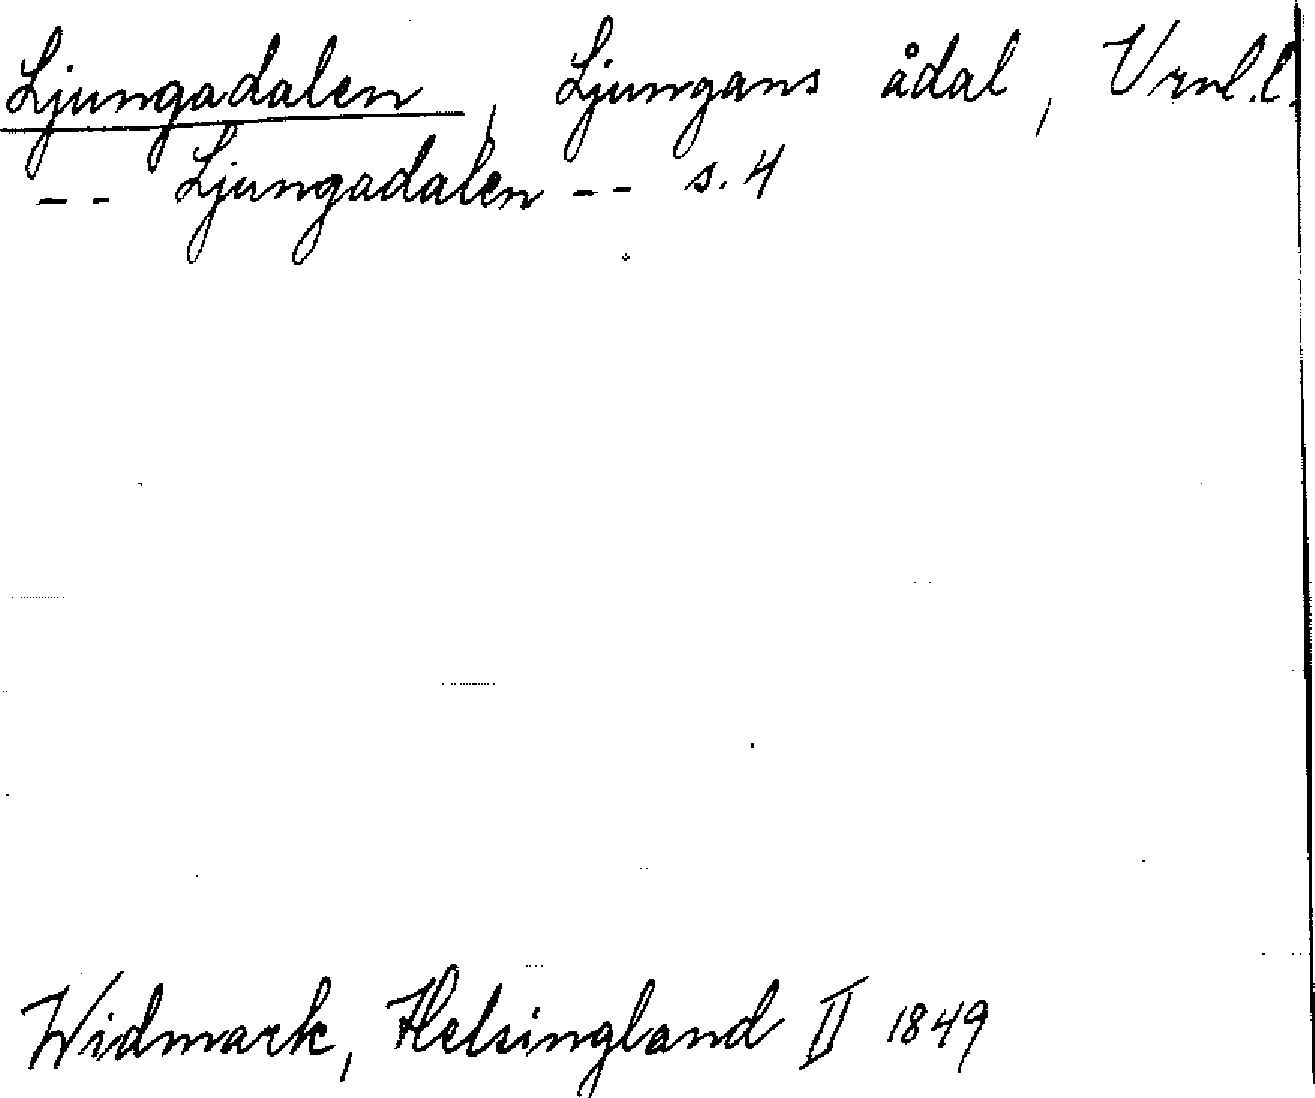 Ljungadalen, Ljungans ådal, Vrnl.l.
-- Ljungadalen -- s. 4
Widmark, Helsingland II 1849